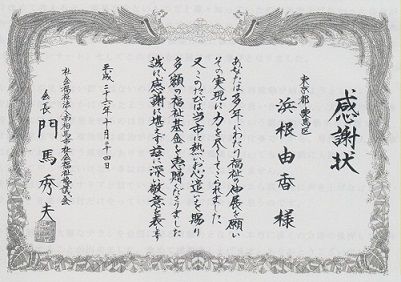 感謝状
東京都 練馬区
浜根由香 様
あなたは多年にわたり福祉の伸展を願い
その実現に力を尽してこられました
又このたびは当市に熱いお心遣いを賜り
多額の福祉基金を恵贈くださりました
誠に感謝に堪えず茲に深く敬意を表します
平成二十六年 月二十四日
社会福祉法人南相馬市社会福祉協議会
会長 門馬秀夫